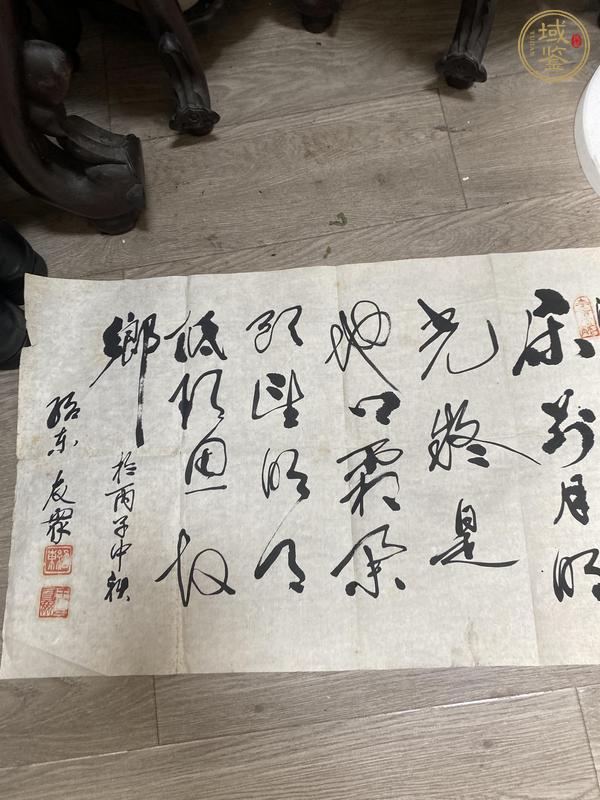 床前月明
光疑是
地上霜举
头望明月
低头思故
鄉
於丙子中秋
绍东友
域鉴